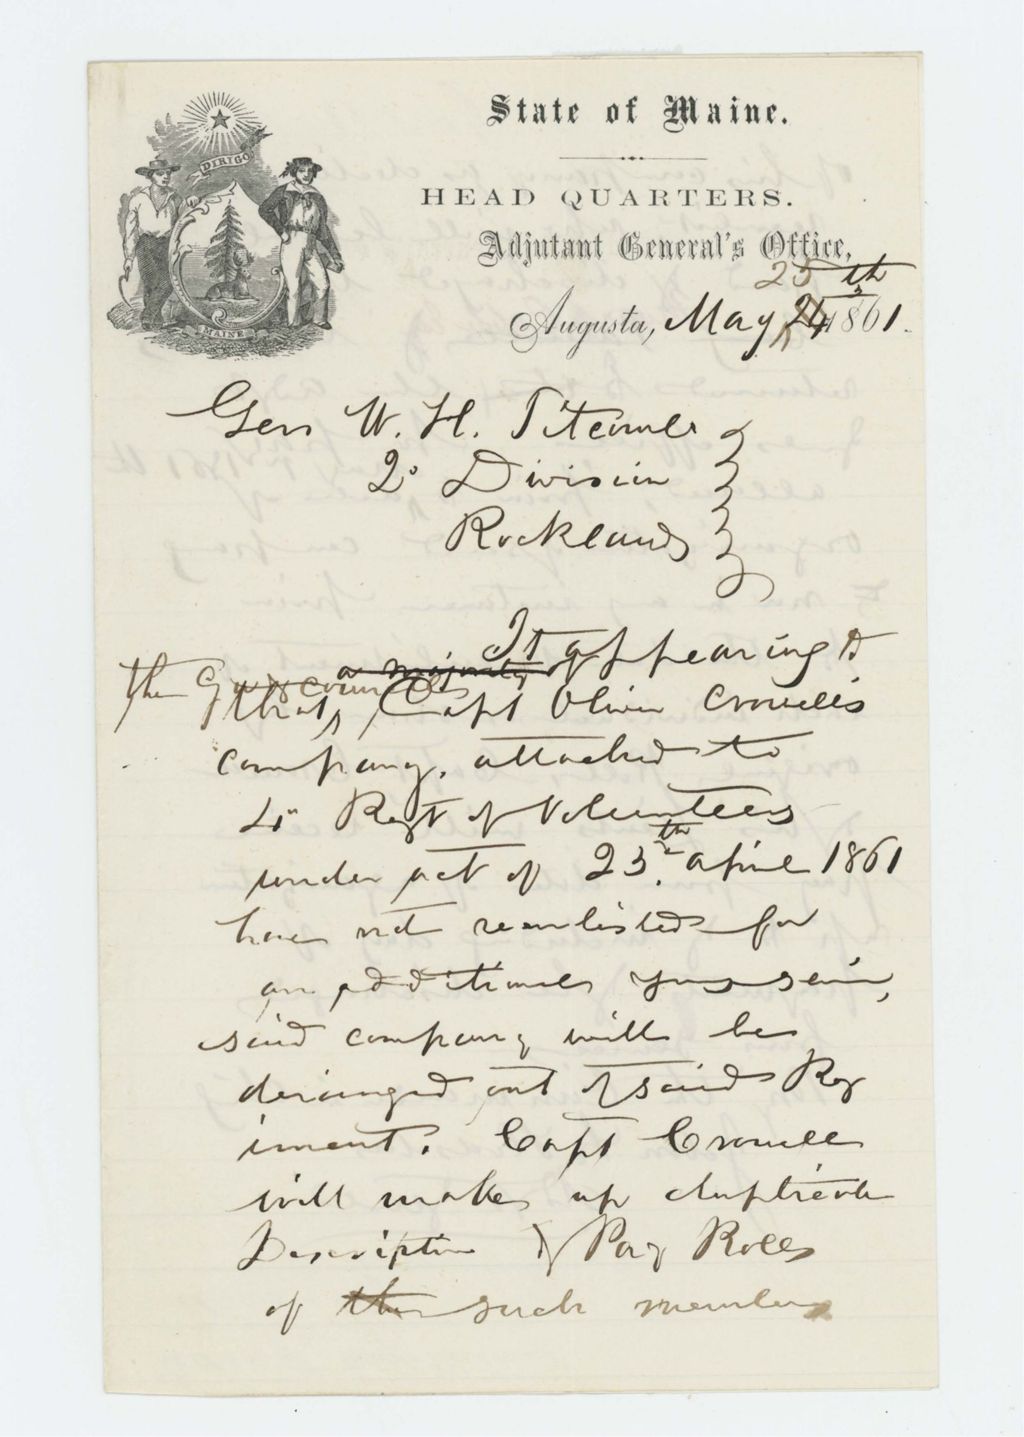 DIRIGO
MAINE
State of Maine.
HEAD QUARTERS.
Adjutant General's Office,
25th
Augusta, May 24 1861.
Gen W. H. Titcomb
2d Division
Rockland
It appearing to
the Gov & council a majority of
that Capt Oliver Crowell's
company, attached to
4th Regt of Volunteers
under act of 25th April 1861
have not reenlisted for
an additional
said company will be
deranged out of said Reg
iment. Capt Crowell
will make up duplicate
Descriptive & Pay Rolls
of the such members